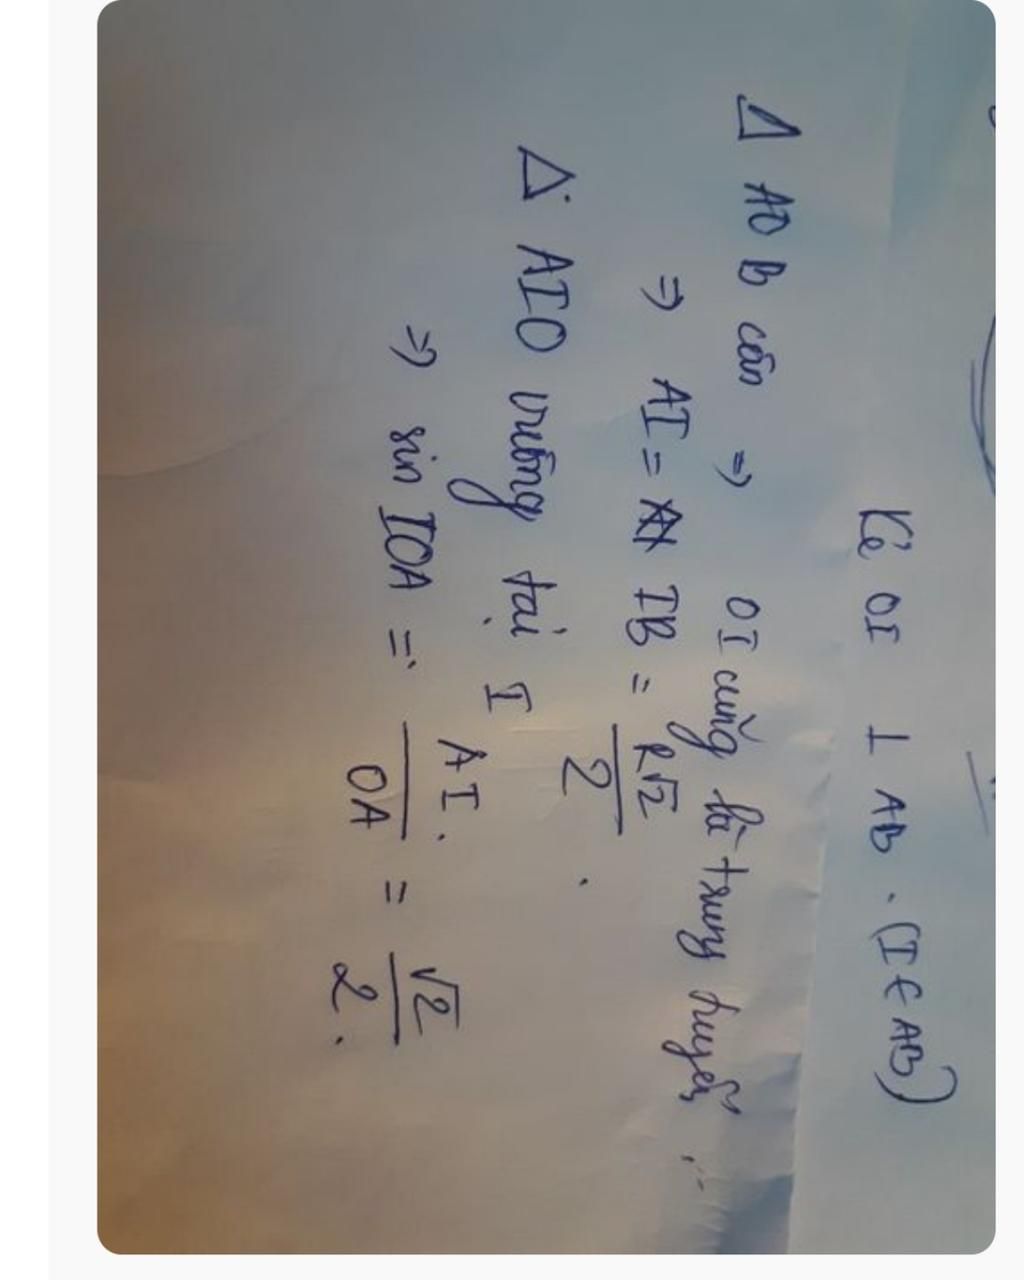 Kẻ OI ⊥ AB. (I ∈ AB)
Δ AOB cân ⇒ OI cũng là trung tuyến.
⇒ AI = IB = R√2/2.
Δ AIO vuông tại I
⇒ sin IOA = AI/OA = √2/2.